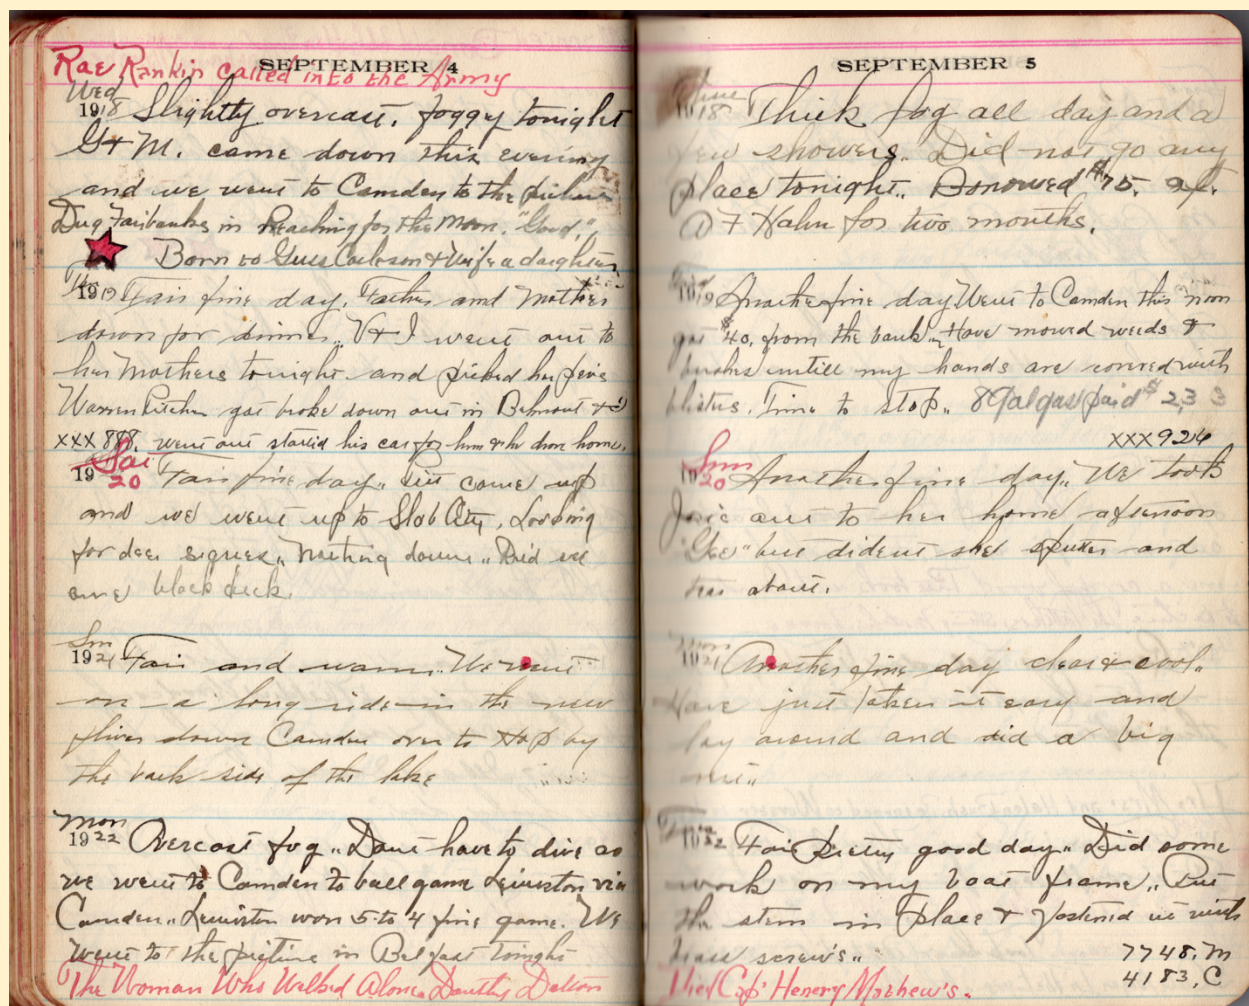 SEPTEMBER 4
Rae Rankin called into the Army
Wed
1918 Slightly overcast, foggy tonight
G & M. came down this evening
and we went to Camden to the picture
Dug Fairbanks in Reaching for the Moon. "Good"
Born to Guss Carlson & Wife a daughter
1919 Fair fine day. Father and Mother
down for dinner,, V & I went out to
her Mothers tonight and picked her pears
Warren Pitcher got broke down out in Belmont & I
XXX 888. went out started his car for him & he drove home.
Sat
1920 Fair fine day,, came up
and we went up to Slab City, Looking
for deer signes,, Nothing down,, Did see
one black duck.
Sun
1921 Fair and warm.. We went
on a long ride in the new
fliver down Camden over to Hop by
the back side of the lake
Mon
1922 Overcast fog.. Dont have to dive so
we went to Camden to ball game Lewiston vs
Camden.. Lewiston won 5 to 4 fine game. We
went to the picture in Belfast tonight
The Woman Who Walked Alone Dorothy Dalton
SEPTEMBER 5
1918 Thick fog all day and a
few showers.. Did not go any
place tonight.. Borrowed $75. of
A F Hahn for two months.
1919 Another fine day Went to Camden this noon
got $40. from the bank.. Have mowed weeds &
bushes untill my hands are covered with
blisters. Time to stop.. 8 Gal gas paid $2.33
XXX924
Sun
1920 Another fine day.. We took
Josie out to her home afternoon
Gee" but dident she sputter and
about.
Mon
1921 Another fine day clear & cool..
Have just taken it easy and
lay around and did a big
1922 Fair Pretty good day.. Did some
work on my boat frame.. Put
the stem in place & fastened it with
brass screws..
7748. M
4183. C
Died Cap' Henery Mathew's.